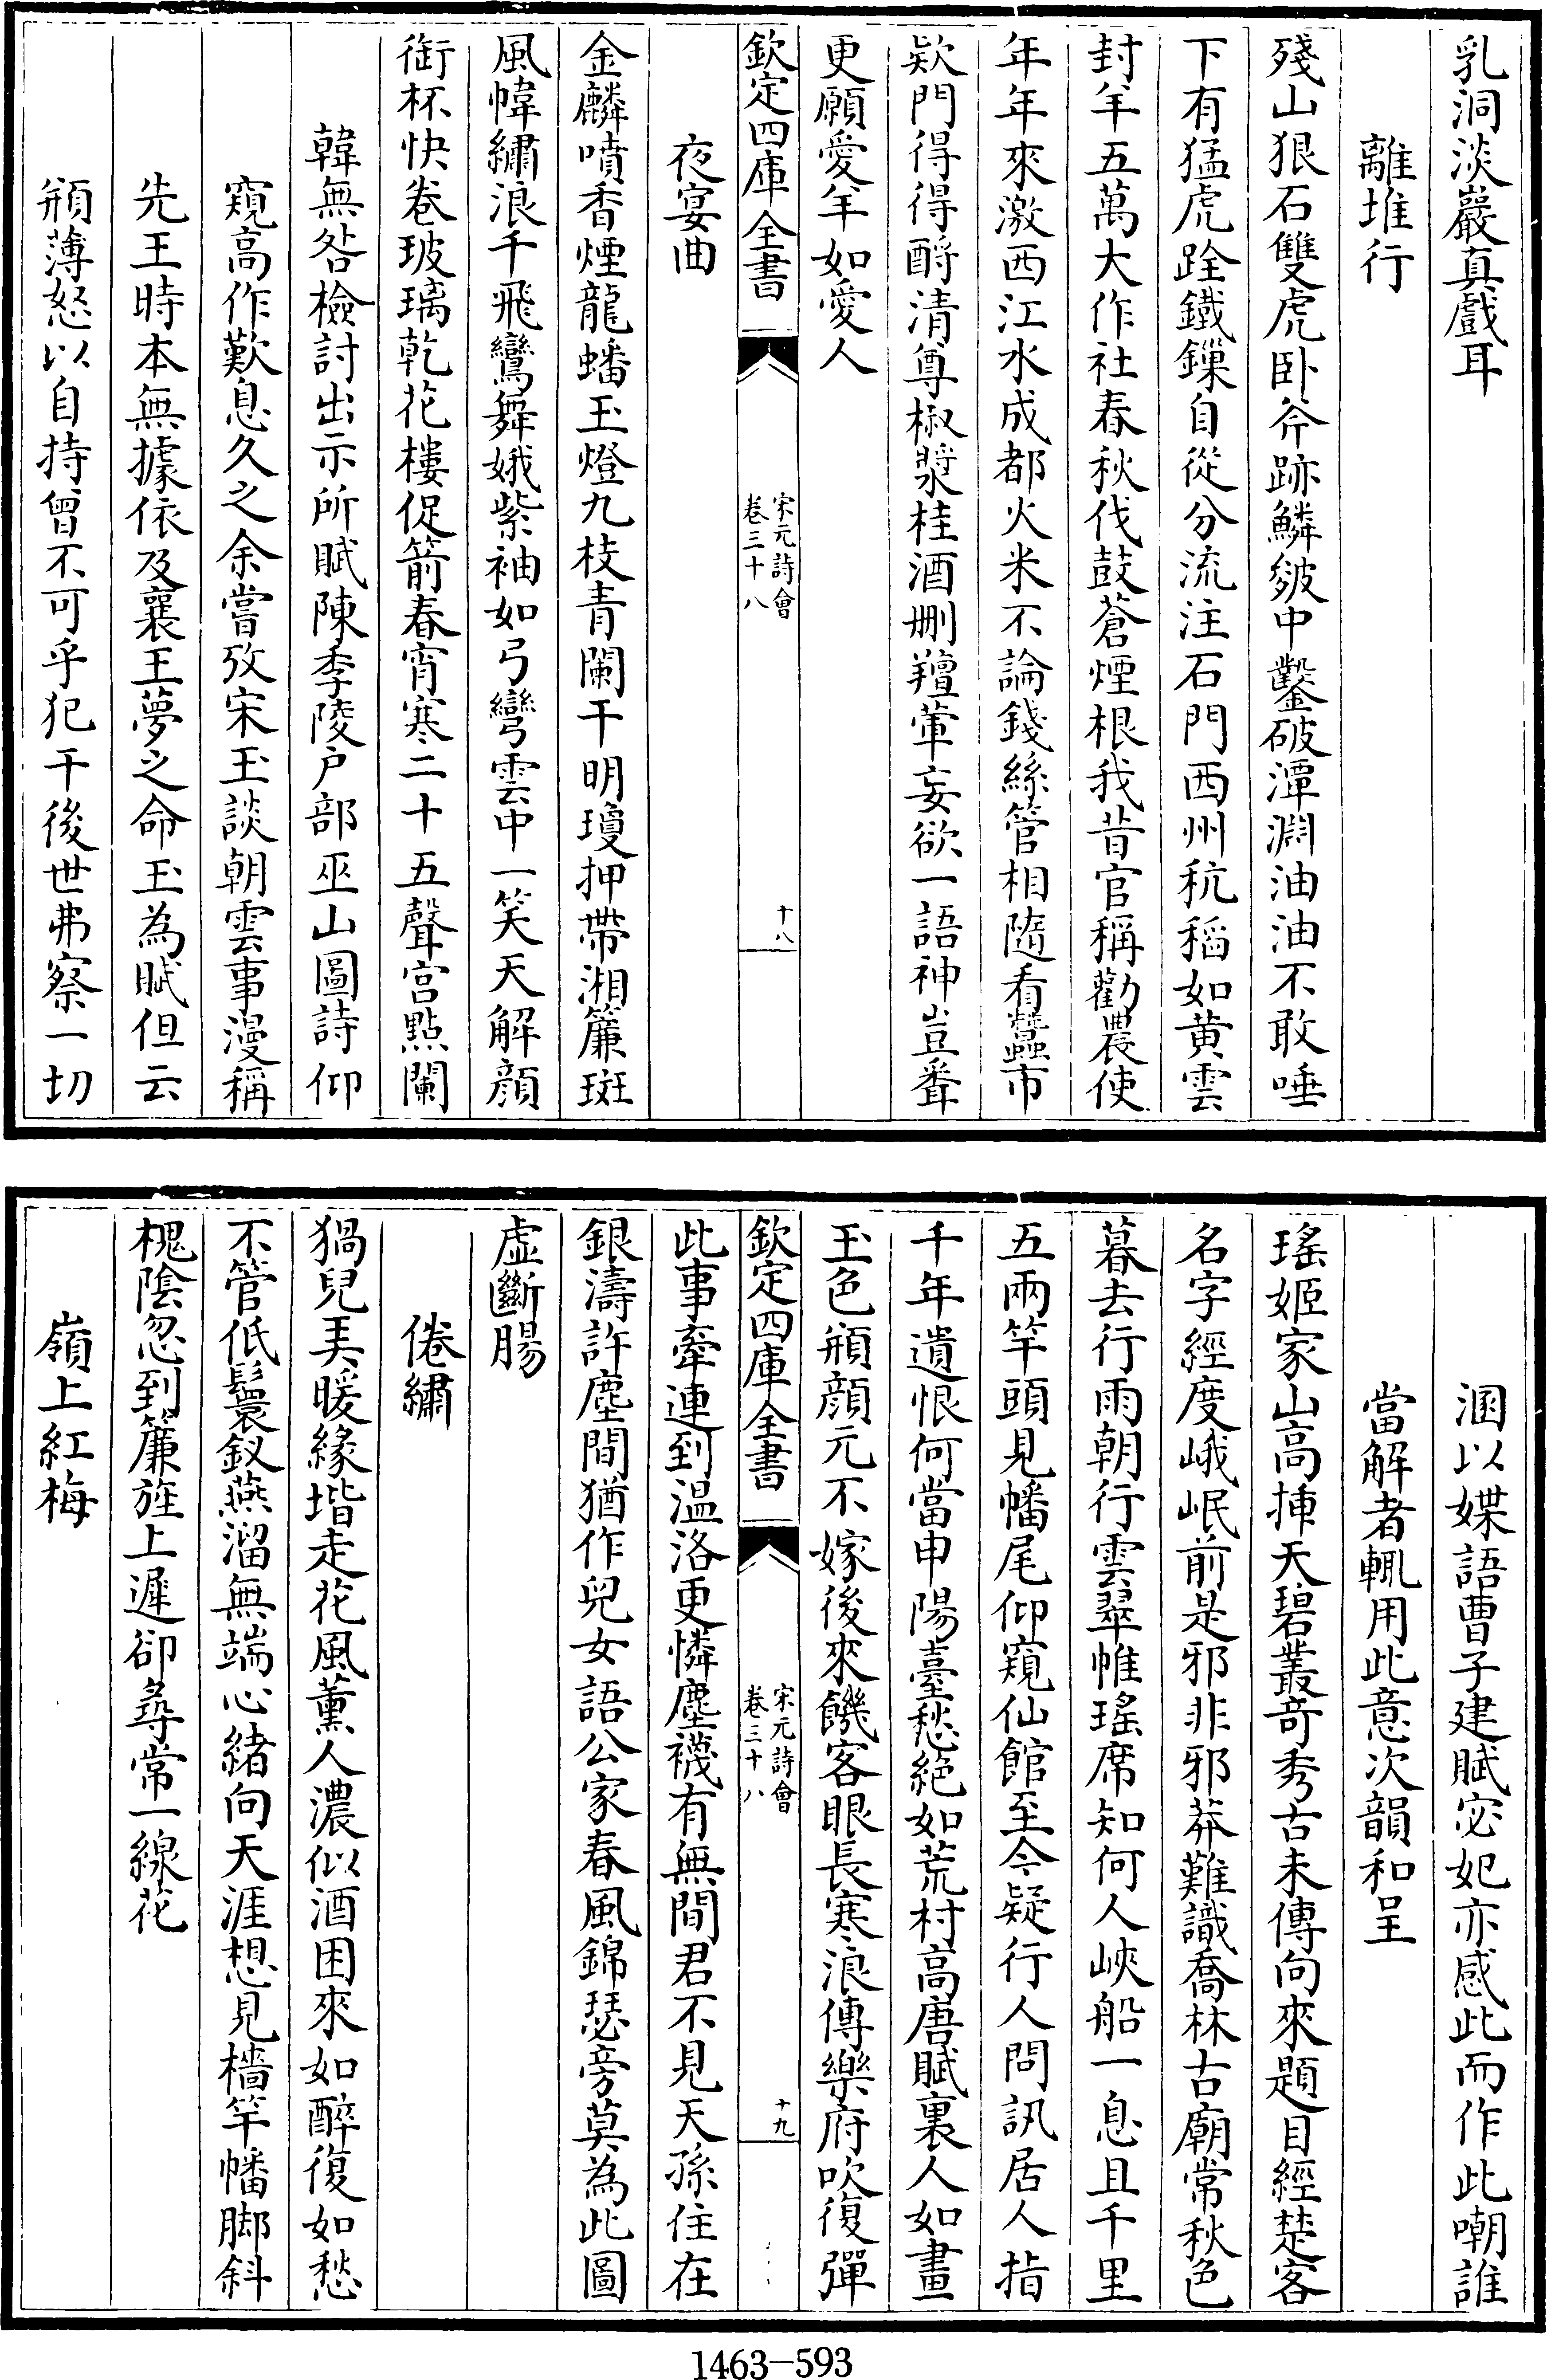 乳洞淡巖真戲耳
離堆行
殘山狠石雙虎卧斧跡鱗皴中鑿破潭淵油油不敢唾
下有猛虎跧鐵鏁自從分流注石門西州秔稻如黃雲
封羊五萬大作社春秋伐鼓蒼煙根我昔官稱勸農使
年年來激西江水成都火米不論錢絲管相隨看蠶市
欵門得得酹清尊椒漿桂酒刪羶葷妄欲一語神豈眷
更願愛羊如愛人
欽定四庫全書
宋元詩會
卷三十八
十八
夜宴曲
金麟噴香煙龍蟠玉燈九枝青闌干明瓊押帶湘簾斑
風幃繡浪千飛鸞舞娥紫袖如弓彎雲中一笑天解顏
銜杯快卷玻璃乾花樓促箭春宵寒二十五聲宮點闌
韓無咎檢討出示所賦陳季陵户部巫山圖詩仰
窺高作歎息久之余嘗攷宋玉談朝雲事漫稱
先王時本無據依及襄王夢之命玉為賦但云
頩薄怒以自持曾不可乎犯干後世弗察一切
溷以媟語曹子建賦宓妃亦感此而作此嘲誰
當解者輒用此意次韻和呈
瑤姬家山高揷天碧叢奇秀古未傳向來題目經楚客
名字經度峨岷前是邪非邪莽難識喬林古廟常秋色
暮去行雨朝行雲翠帷瑤席知何人峽船一息且千里
五兩竿頭見幡尾仰窺仙館至今疑行人問訊居人指
千年遺恨何當申陽臺愁絕如荒村高唐賦裏人如畫
玉色頩顏元不嫁後來饑客眼長寒浪傳樂府吹復彈
欽定四庫全書
宋元詩會
卷三十八
十九
此事牽連到温洛更憐塵襪有無間君不見天孫住在
銀濤許塵間猶作兒女語公家春風錦瑟旁莫為此圖
虛斷腸
倦繡
猧兒弄暖緣堦走花風薰人濃似酒困來如醉復如愁
不管低鬟釵燕溜無端心緒向天涯想見檣竿幡脚斜
槐陰忽到簾旌上遲卻尋常一線花
嶺上紅梅
1463-593